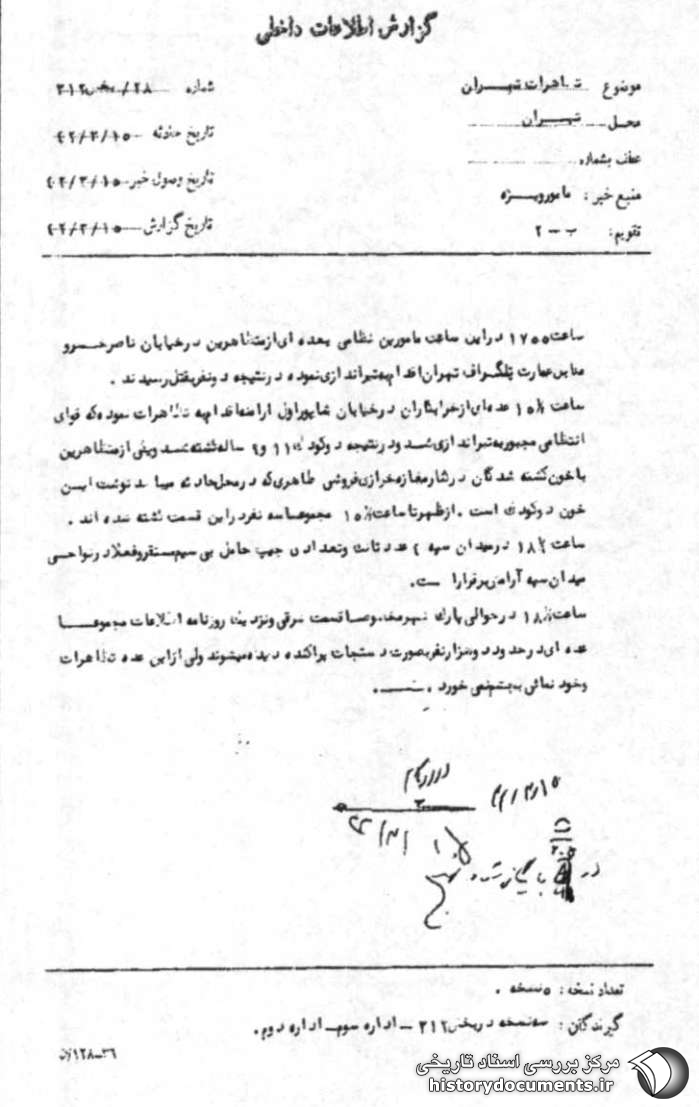 گزارش اطلاعات داخلی
موضوع تظاهرات تهران
شماره ۲۸/ بخش ۳۱۲
محل تهران
تاریخ حادثه ۴۲/۳/۱۵
عطف بشماره
تاریخ وصول خبر ۴۲/۳/۱۵
منبع خبر: مامور ویژه
تاریخ گزارش ۴۲/۳/۱۵
تقویم: ب-۲
ساعت ۱۷۰۰ در این ساعت مامورین نظامی بعده ای از متظاهرین در خیابان ناصر خسرو
مقابل عمارت تلگراف تهران اقدام به تیراندازی نموده در نتیجه دو نفر بقتل رسیدند .
ساعت عده‌ای از خرابکاران در خیابان شاپور اول اقدام به تظاهرات نموده که قوای
انتظامی مجبور به تیراندازی شد و در نتیجه دو کودک ۱۱ و ۹ ساله کشته شد و یکی از متظاهرین
با خون کشته شدگان در کنار مغازه خرازی فروشی طاهری که در محل حادثه میباشد نوشت این
خون دو کودک است . از ظهر تا ساعت مجموعا سه نفر در این قسمت کشته شده اند .
ساعت در میدان سپه ۴ عدد تانک و تعدادی جیپ حامل بی سیم مستقر و فعلا در نواحی
میدان سپه آرامش برقرار است .
ساعت در حوالی پارک شهر مخصوصا قسمت شرقی و نزدیک روزنامه اطلاعات مجموعا
عده ای در حدود دو هزار نفر بصورت دستجات پراکنده دیده میشوند ولی از این عده تظاهرات
و خود نمائی بچشم نمی خورد .
۴۲/۳/۱۵
تعداد نسخه: ۵ نسخه .
گیرندگان: سه نسخه در بخش ۳۱۲ - اداره سوم - اداره دوم .
۳۶-۱۲۸
مرکز بررسی اسناد تاریخی
historydocuments.ir